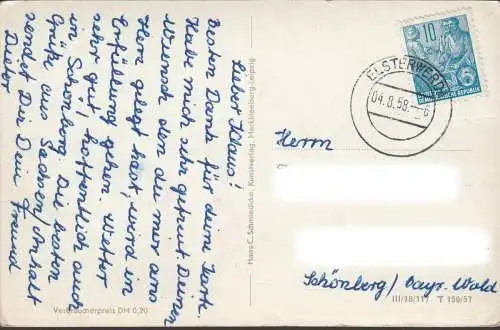 Lieber Klaus!
Besten Dank für dein Karte.
Habe mich sehr gefreut. Deinen
Wunsch den du mir ans
Herz gelegt hast, wird in
Erfüllung gehen. Wetter
sehr gut, hoffentlich auch
in Schönberg. Die besten
Grüße aus Sachsen/Anhalt
sendet Dir Dein Freund
Dieter
Verbraucherpreis DM 0,20
Hans C. Schmiedicke, Kunstverlag, Markkleeberg-Leipzig
10
DEUTSCHE DEMOKRATISCHE REPUBLIK
ELSTERWERDA
04.8.58
Herrn
Schönberg/ Bayr. Wald
III/18/117 T 159/57